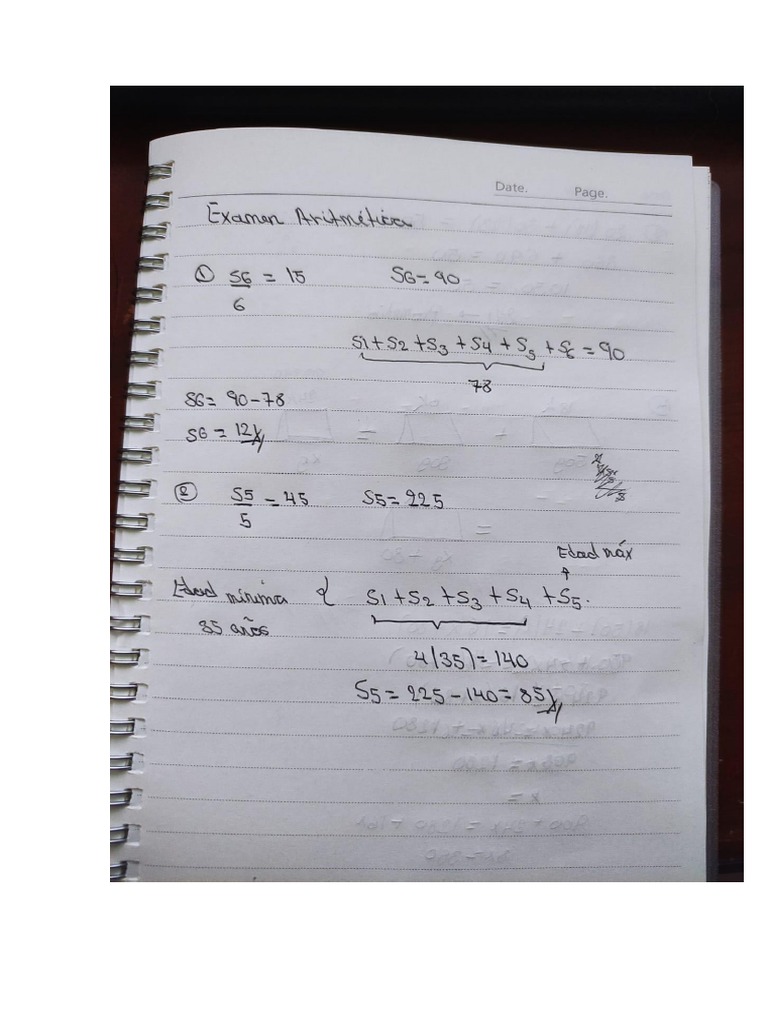 Date. Page.
Examen Aritmética
① S6/6 = 15 S6 = 90
S1 + S2 + S3 + S4 + S5 + S6 = 90
78
S6 = 90 - 78
S6 = 12
② S5/5 = 45 S5 = 225
Edad máx
Edad mínima { S1 + S2 + S3 + S4 + S5.
35 años
4(35) = 140
S5 = 225 - 140 = 85